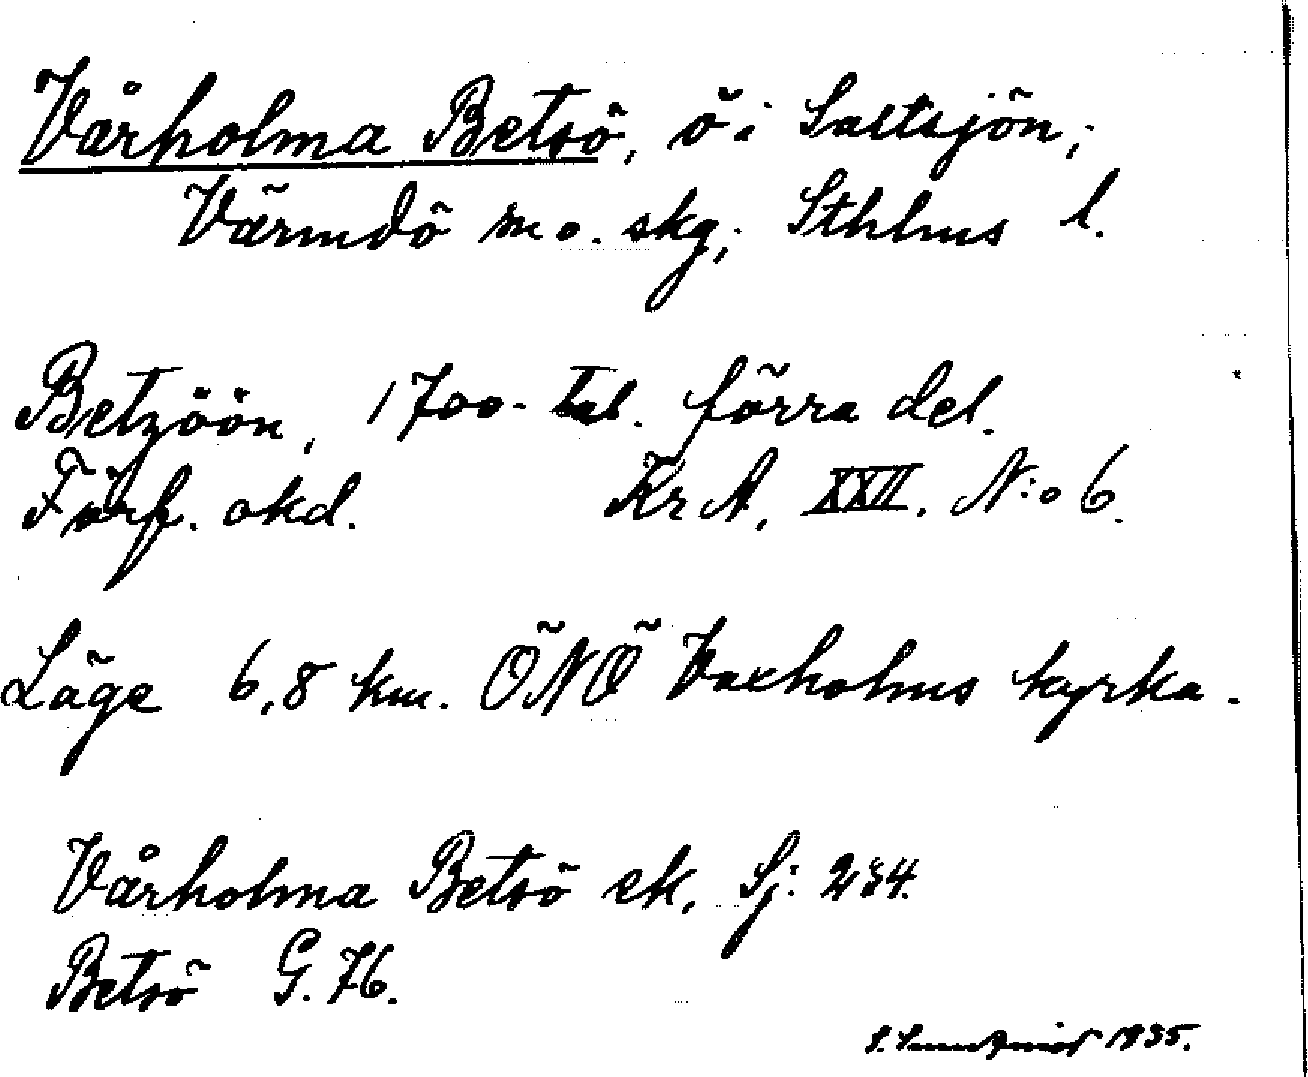 Vårholma Betsö, ö i Saltsjön,
Värmdö m o. skg; Sthlms l.
Betzöön, 1700-tal. förra del.
Förf. okd. KrA. XXII. N:o 6.
Läge 6,8 km. ÖNÖ Vaxholms kyrka.
Vårholma Betsö ek. Sj: 234.
Betsö G. 76.
1935.